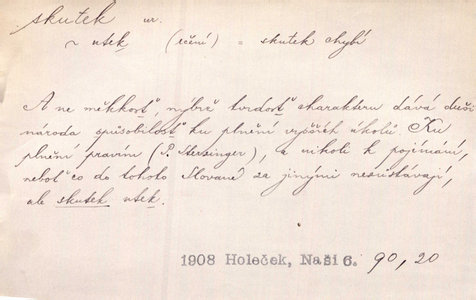 skutek ur.
~ utek (rčení) = skutek chybí
A ne měkkosť, nýbrž tvrdosť charakteru dává duši
národa spůsobilosť ku plnění vyšších úkolů. Ku
plnění pravím (P. Sterzinger), a nikoli k pojímání,
neboť co do tohoto Slované za jinými nezůstávají,
ale skutek utek.
1908 Holeček, Naši 6. 90, 20